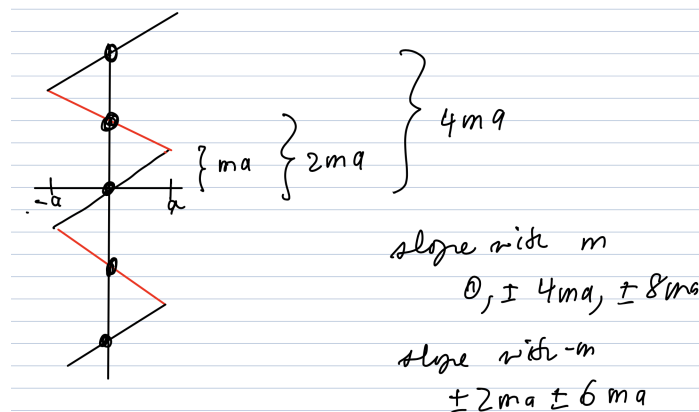 4ma
} ma } 2ma
-a a
slope with m
0, ± 4ma, ± 8ma
slope with -m
± 2ma ± 6ma